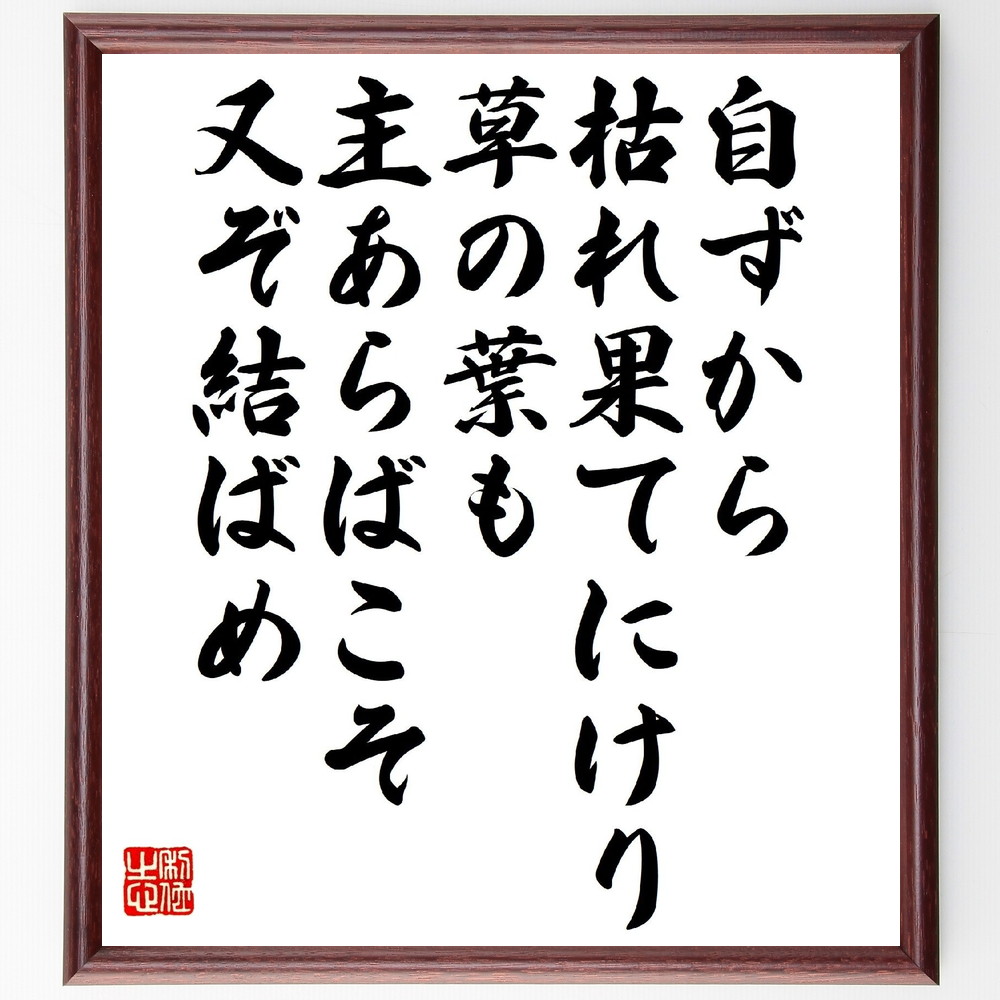 自ずから
枯れ果てにけり
草の葉も
主あらばこそ
又ぞ結ばめ